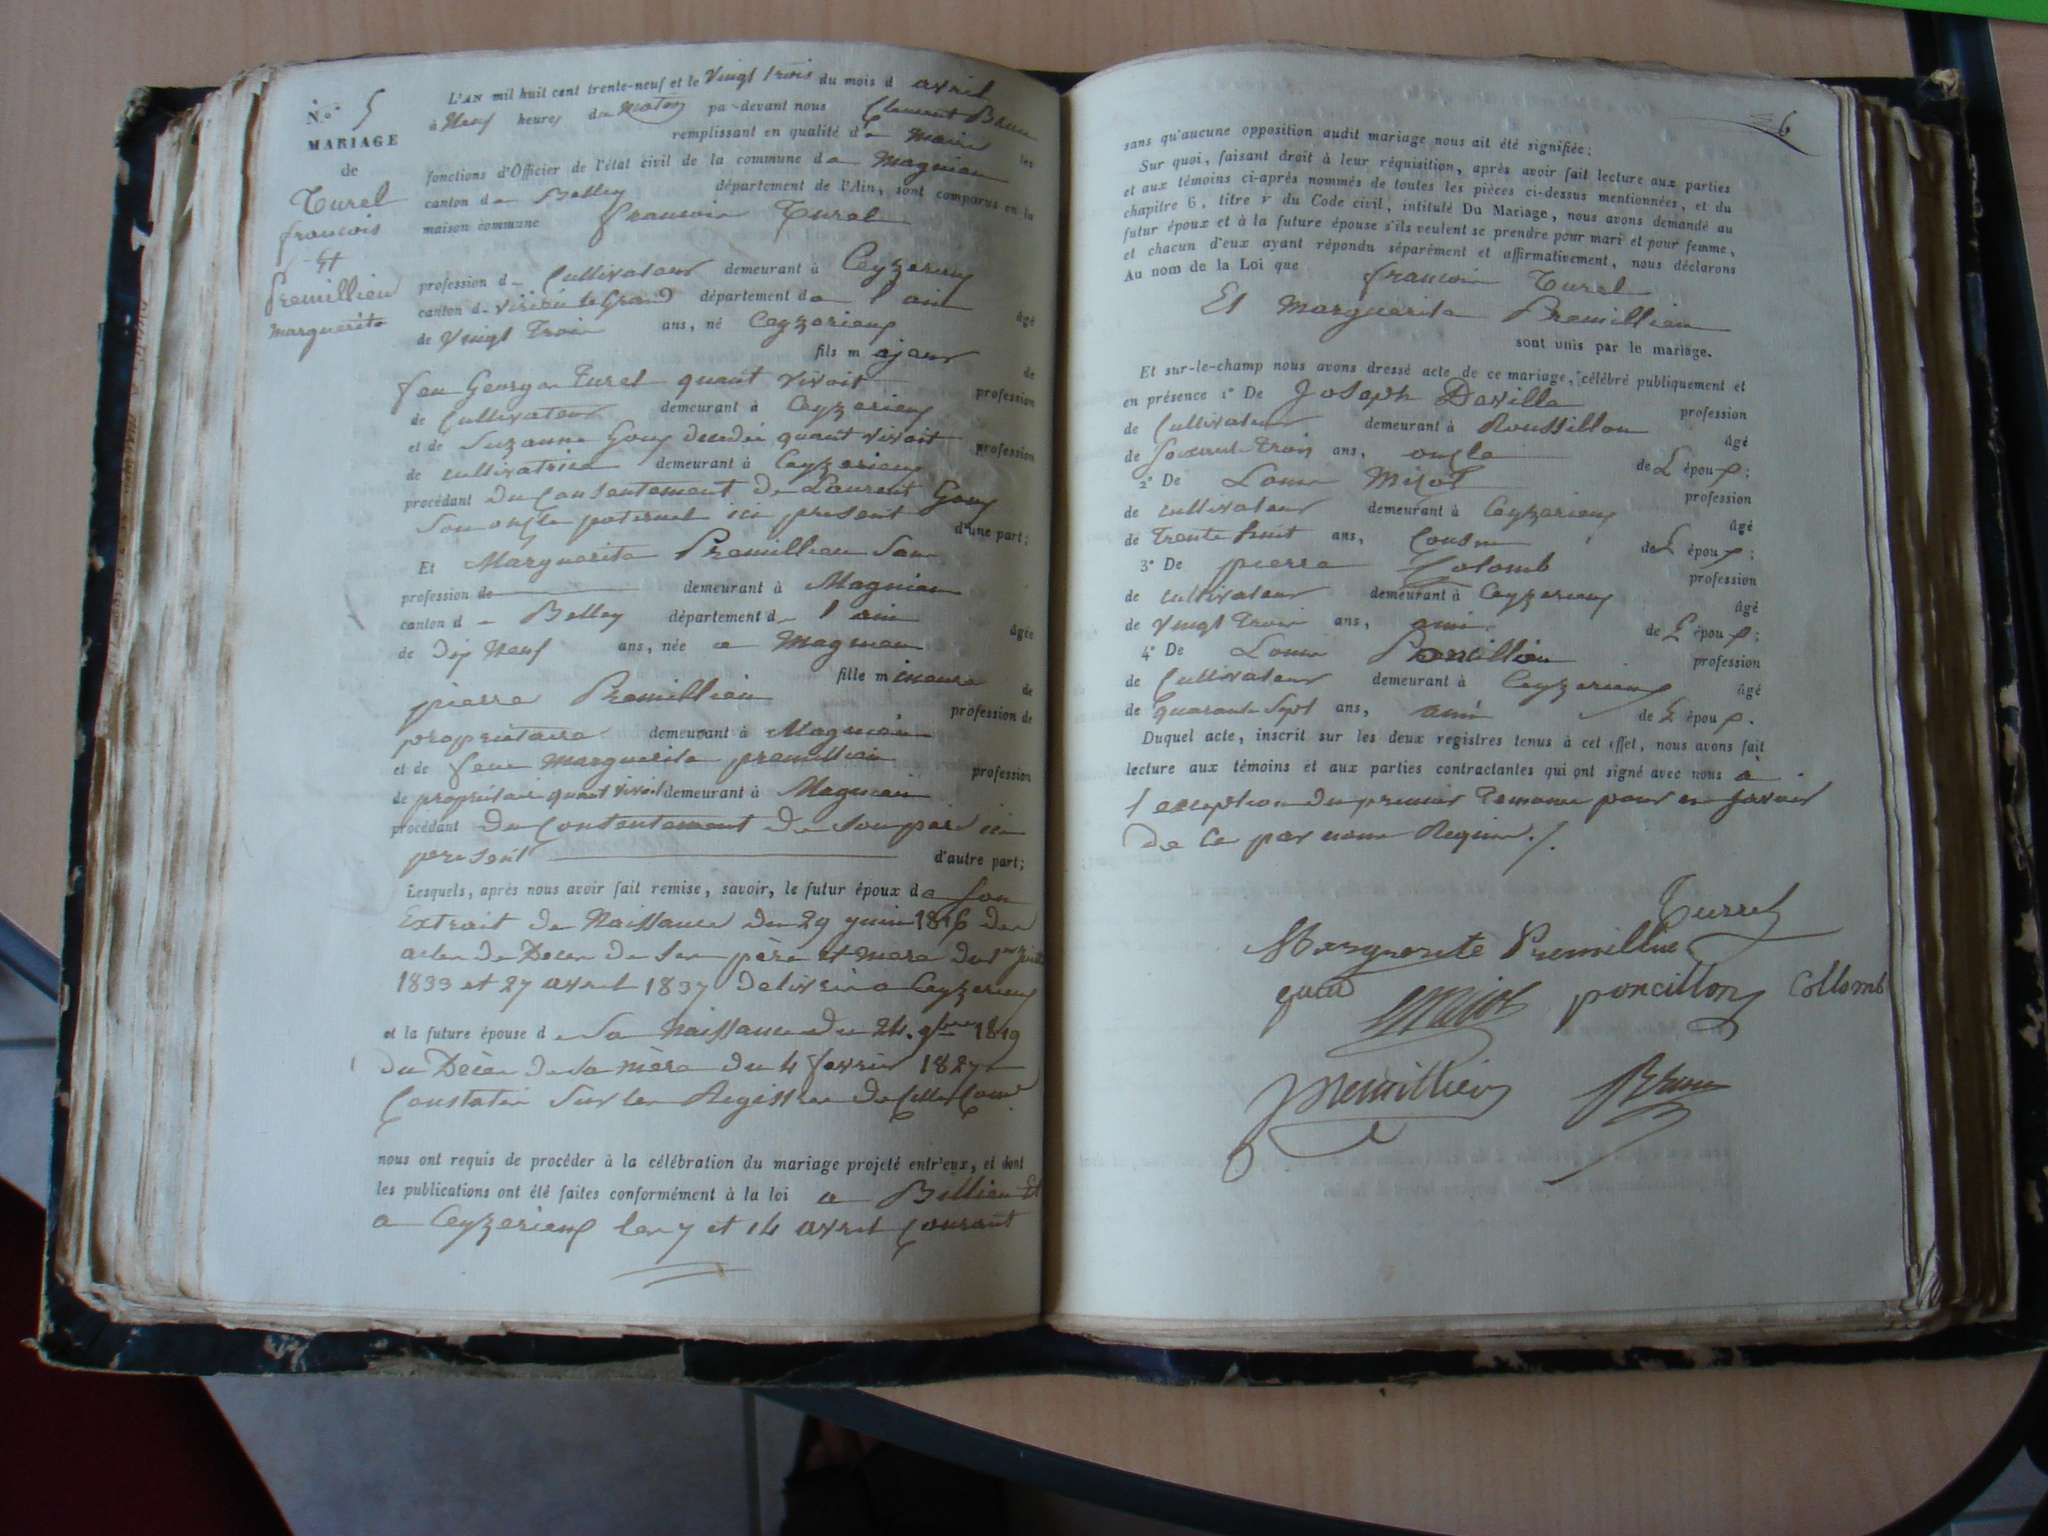 N.o 5
MARIAGE
de
Turel
francois
Et
Premillieu
marguerite
L'AN mil huit cent trente-neuf et le Vingt trois du mois d avril
à Neuf heures du Matin pa-devant nous Clement Brun
remplissant en qualité de maire les
fonctions d'Officier de l'état civil de la commune de Magnieu
canton de Belley département de l'Ain, sont comparus en la
maison commune francois Turel
profession de Cultivateur demeurant à Ceyzerieux
canton de virieu le Grand département de l ain âgé
de Vingt Trois ans, né Ceyzerieux
fils majeur de
feu George Turel quant vivoit profession
de Cultivateur demeurant à Ceyzerieux
et de Suzanne Gouy decedée quant vivoit profession
de cultivatrice demeurant à Ceyzerieux
procédant du Consentement de Laurent Gouy
Son oncle paternel ici present d'une part;
Et Marguerite Premillieu San
profession de demeurant à Magnieu
canton de Belley département de l ain âgée
de dix Neuf ans, née a Magnieu
fille mineure de
pierre Premillieu profession de
propriétaire demeurant à Magnieu
et de feue marguerite premillieu profession
de propriétaire quant vivoit demeurant à Magnieu
procédant du Consentement de Son père ici
present d'autre part;
Lesquels, après nous avoir fait remise, savoir, le futur époux de son
Extrait de Naissance du 29 juin 1816 des
actes de Deces de Ses père et mere du 1er
1833 et 27 avril 1837 délivrés a Ceyzerieux
et la future épouse de Sa Naissance du 24. 9bre 1819
du Décès de Sa mère du 4 fevrier 1827
Constatés Sur les Registres de Cette Comne
nous ont requis de procéder à la célébration du mariage projeté entr'eux, et dont
les publications ont été faites conformément à la loi a Billieu Et
a Ceyzerieux les 7 et 14 avril Courant
6
sans qu'aucune opposition audit mariage nous ait été signifiée;
Sur quoi, faisant droit à leur réquisition, après avoir fait lecture aux parties
et aux témoins ci-après nommés de toutes les pièces ci-dessus mentionnées, et du
chapitre 6, titre v du Code civil, intitulé Du Mariage, nous avons demandé au
futur époux et à la future épouse s'ils veulent se prendre pour mari et pour femme,
et chacun d'eux ayant répondu séparément et affirmativement, nous déclarons
Au nom de la Loi que francois Turel
Et Marguerite Premillieu
sont unis par le mariage.
Et sur-le-champ nous avons dressé acte de ce mariage, célébré publiquement et
en présence 1° De Joseph Deville profession
de Cultivateur demeurant à Roussillon âgé
de Soixante Trois ans, oncle de L époux;
2° De Louis Micot profession
de cultivateur demeurant à Ceyzerieux âgé
de Trente huit ans, Cousin de L époux;
3° De pierre Colomb profession
de cultivateur demeurant à Ceyzerieux âgé
de Vingt Trois ans, ami de L époux;
4° De Louis Poncillion profession
de Cultivateur demeurant à Ceyzerieux âgé
de quarante Sept ans, ami de L époux.
Duquel acte, inscrit sur les deux registres tenus à cet effet, nous avons fait
lecture aux témoins et aux parties contractantes qui ont signé avec nous à
l exception du premier Temoins pour ne Savoir
De Ce par nous Requis./.
Turrel
Marguerite Premillieu
Micot poncillon Collomb
premillieu Brun